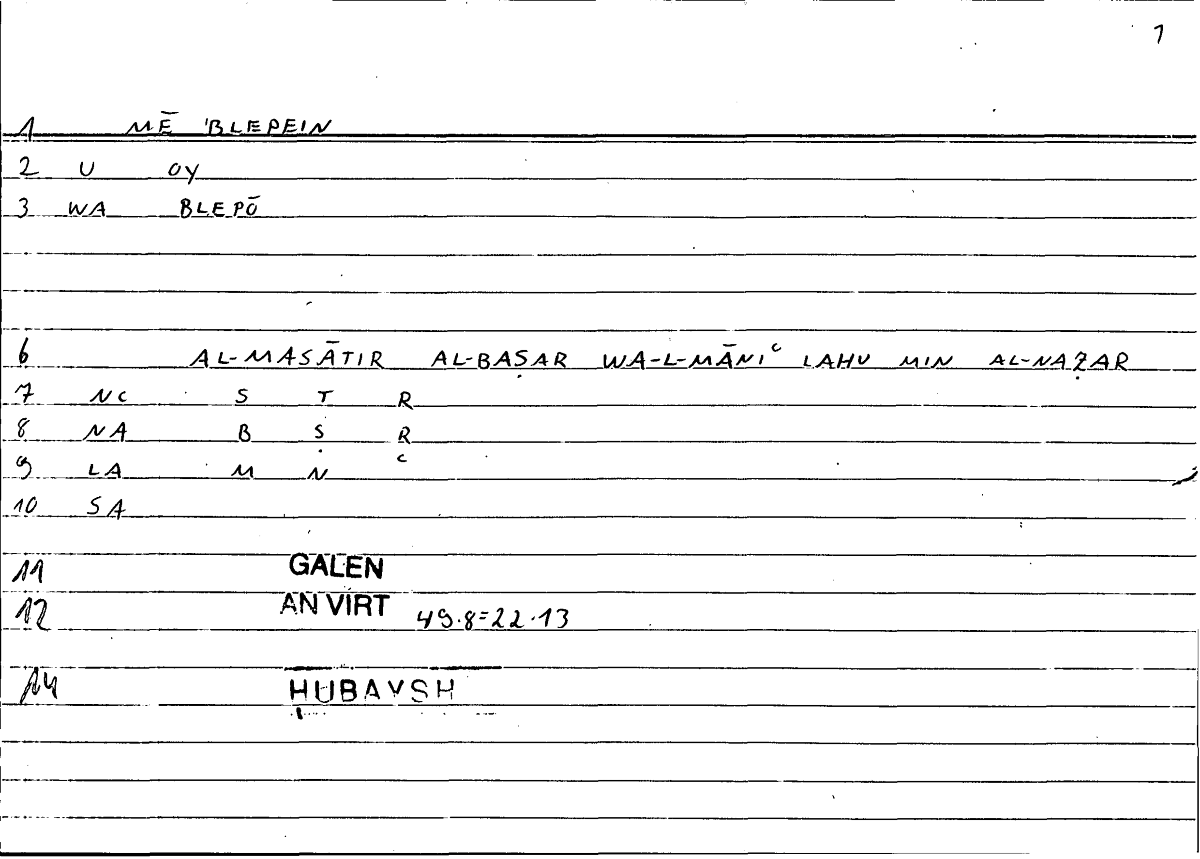 1
1 MĒ BLEPEIN
2 U OY
3 WA BLEPŌ
6 AL-MASĀTIR AL-BAṢAR WA-L-MĀNIᶜ LAHU MIN AL-NAẒAR
7 NC S T R
8 NA B Ṣ R
9 LA M N ᶜ
10 SA
11 GALEN
12 AN VIRT 49.8=22.13
14 HUBAYSH